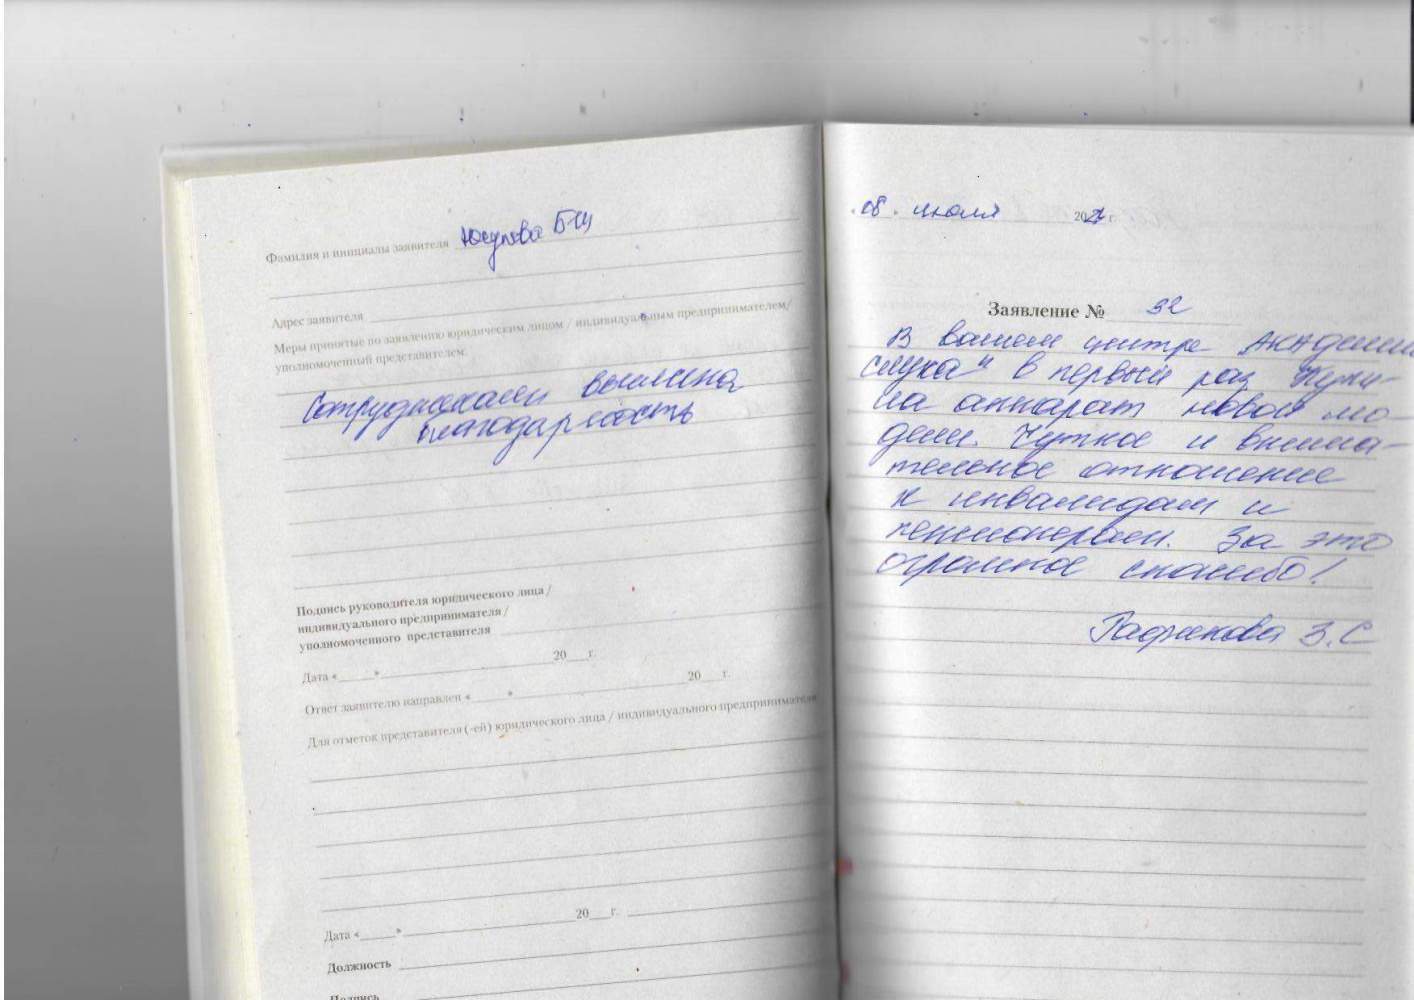 Фамилия и инициалы заявителя Юсупова Б
Адрес заявителя
Меры принятые по заявлению юридическим лицом / индивидуальным предпринимателем/
уполномоченный представителем:
Сотрудникам вынесена
благодарность
Подпись руководителя юридического лица /
индивидуального предпринимателя /
уполномоченного представителя
Дата «____» ____ 20___г.
Ответ заявителю направлен «____» ____ 20___г.
Для отметок представителя (-ей) юридического лица / индивидуального предпринимателя
Дата «____» ____ 20___г.
Должность
Подпись
08. июля 20 г.
Заявление № 32
В вашем центре Академии
слуха" в первый раз Купи-
ла аппарат новой мо-
дели. Чуткое и внима-
тельное отношение
к инвалидам и
пенсионерам. За это
огромное спасибо!
З.С